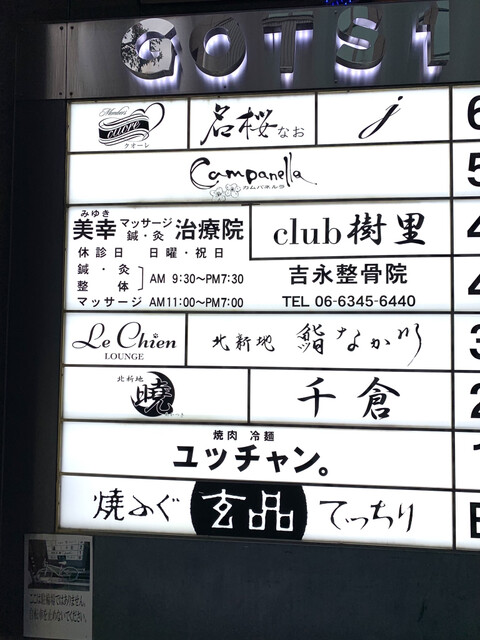 GOTS1
Members
cuore
クオーレ
名桜なお
j
6
Campanella
カムパネルラ
5
みゆき
美幸 マッサージ 鍼・灸 治療院
休診日 日曜・祝日
鍼・灸
整体
AM 9:30〜PM7:30
マッサージ AM11:00〜PM7:00
club樹里
4
吉永整骨院
TEL 06-6345-6440
4
Le Chien
LOUNGE
北新地 鮨なか川
3
北新地
暁
千倉
2
焼肉 冷麺
ユッチャン。
1
焼ふぐ 玄品 てっちり
B
ここは駐輪場ではありません。
自転車を止めないでください。